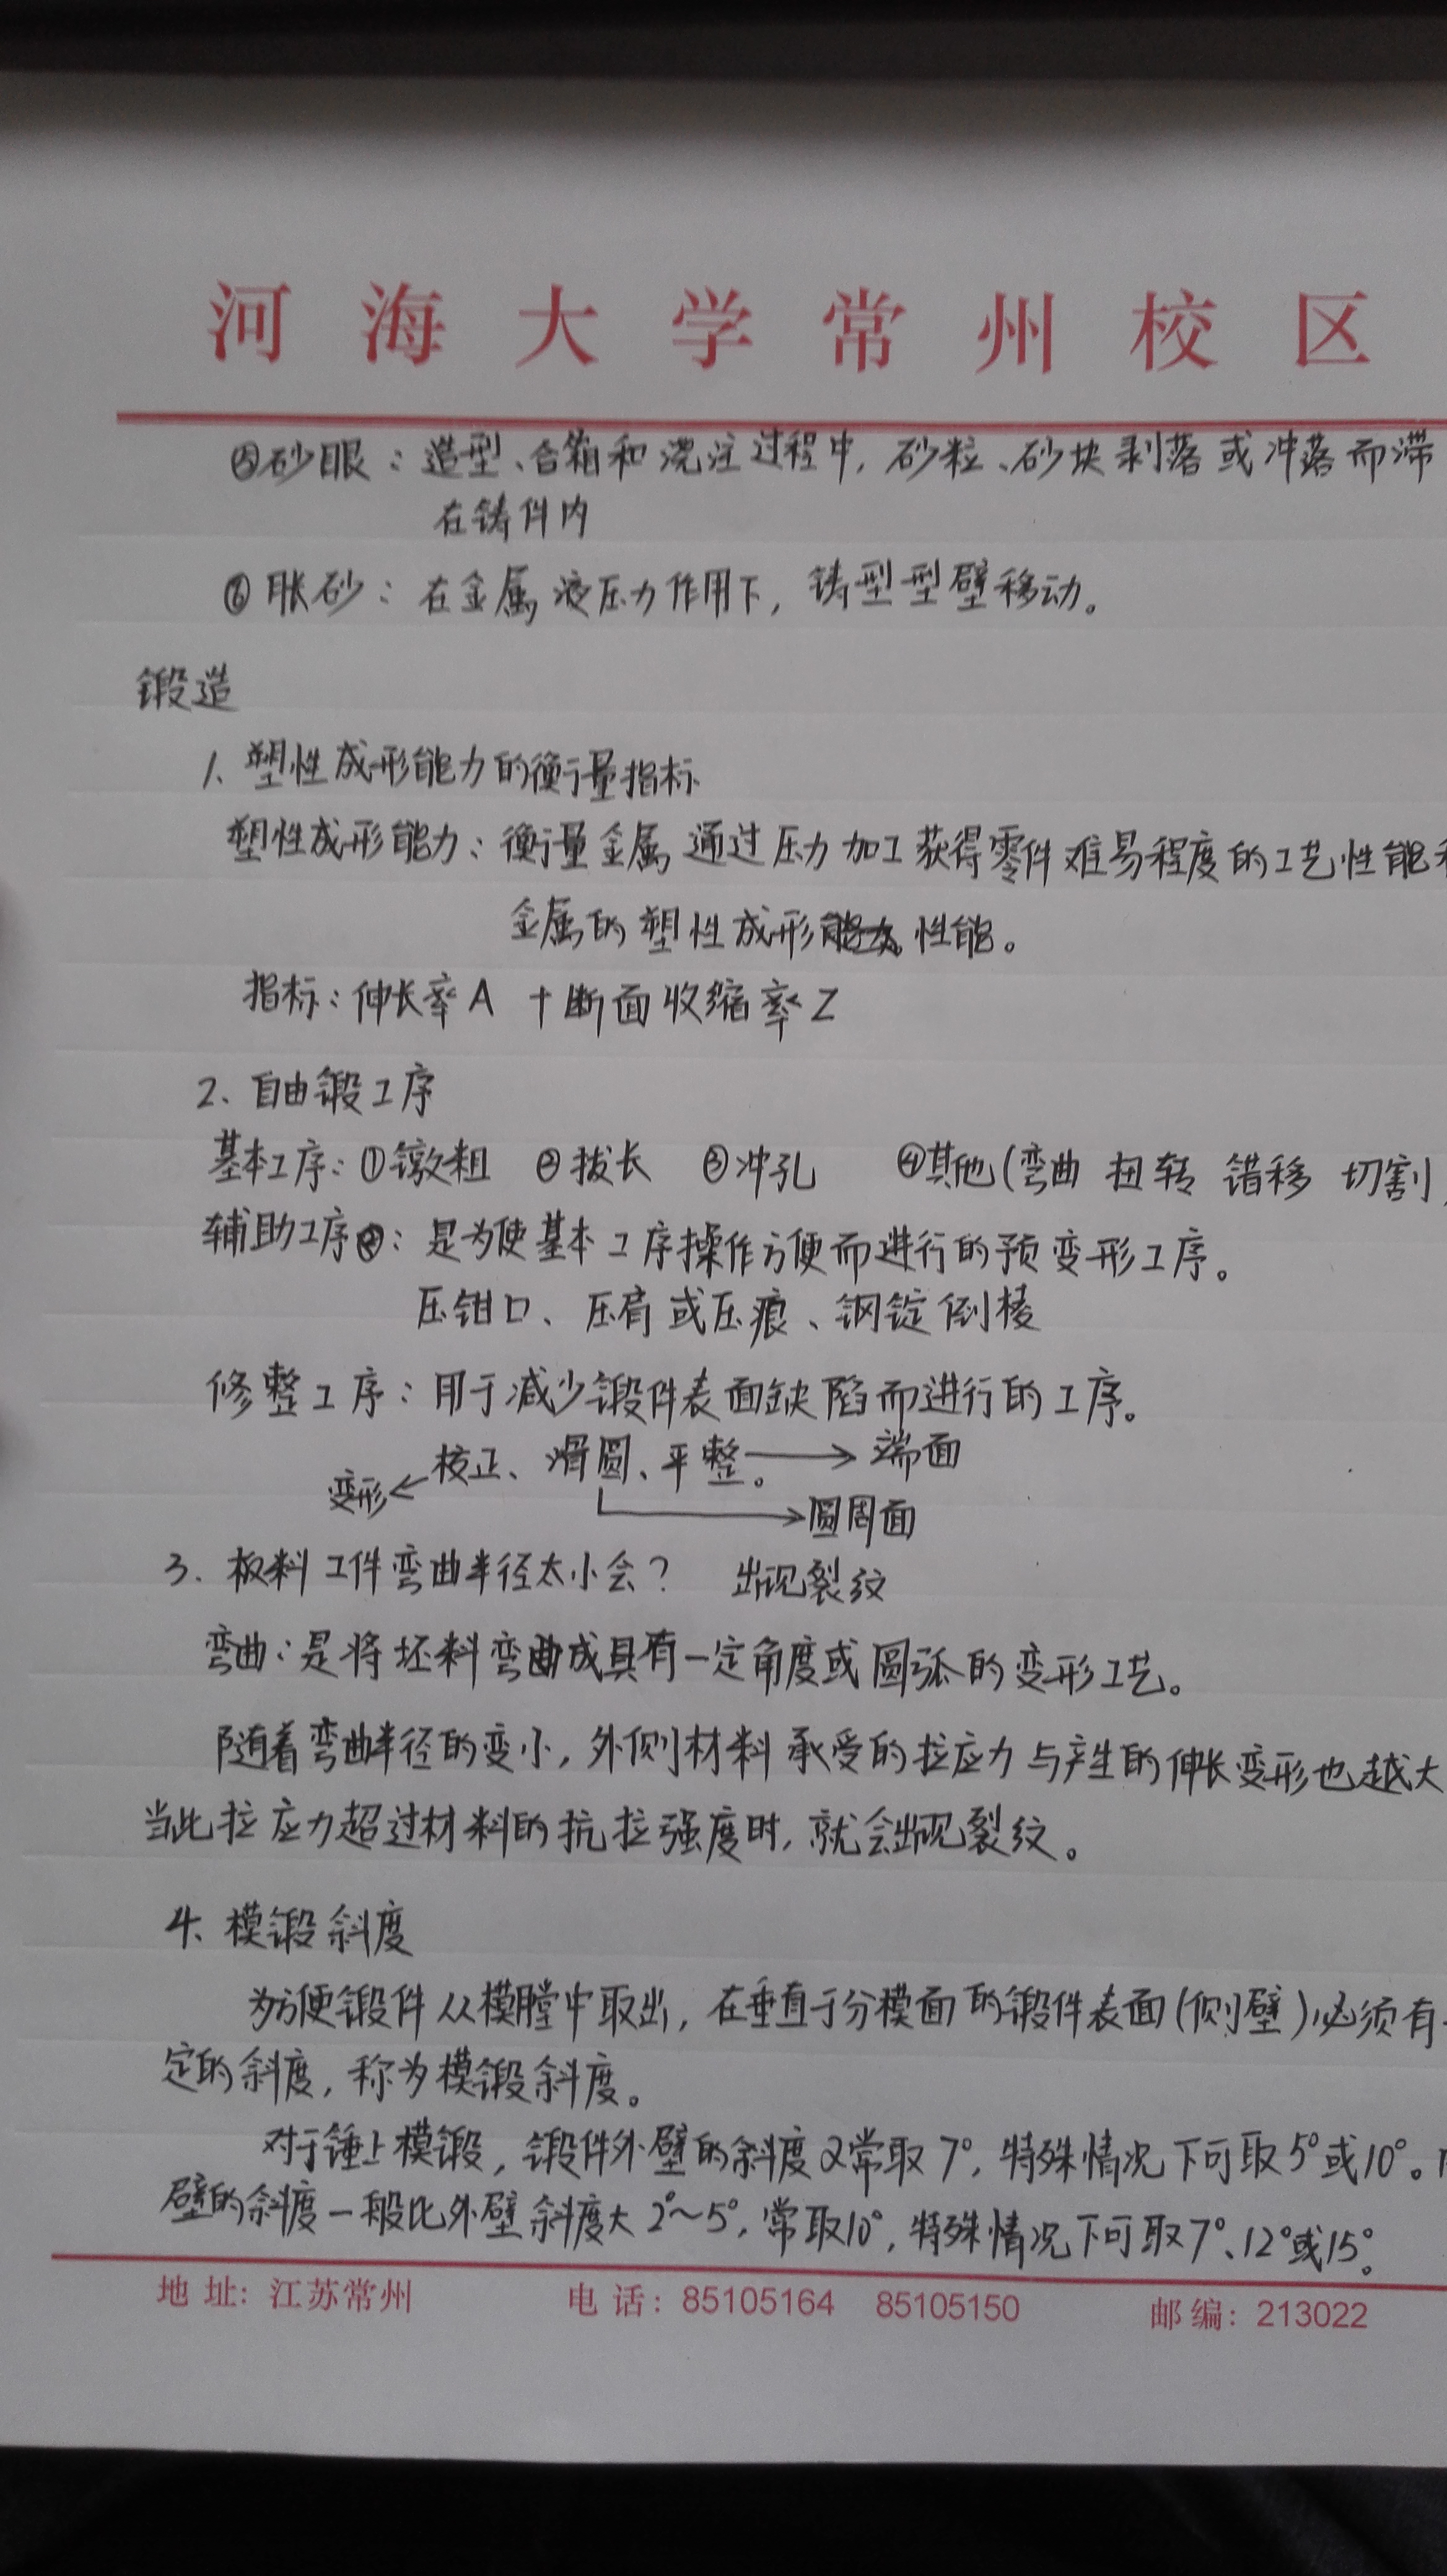 河海大学常州校区
⑤砂眼：造型、合箱和浇注过程中，砂粒、砂块剥落或冲落而滞
在铸件内
⑥胀砂：在金属液压力作用下，铸型型壁移动。
锻造
1、塑性成形能力的衡量指标
塑性成形能力：衡量金属通过压力加工获得零件难易程度的工艺性能
金属的塑性成形性能。
指标：伸长率A + 断面收缩率Z
2、自由锻工序
基本工序：①镦粗 ②拔长 ③冲孔 ④其他(弯曲 扭转 错移 切割
辅助工序：是为使基本工序操作方便而进行的预变形工序。
压钳口、压肩或压痕、钢锭倒棱
修整工序：用于减少锻件表面缺陷而进行的工序。
变形←校正、滑圆、平整。→端面
→圆周面
3. 板料工件弯曲半径太小会？ 出现裂纹
弯曲：是将坯料弯曲成具有一定角度或圆弧的变形工艺。
随着弯曲半径的变小，外侧材料承受的拉应力与产生的伸长变形也越大
当此拉应力超过材料的抗拉强度时，就会出现裂纹。
4、模锻斜度
为方便锻件从模膛中取出，在垂直于分模面的锻件表面(侧壁)必须有一
定的斜度，称为模锻斜度。
对于锤上模锻，锻件外壁的斜度α常取7°，特殊情况下可取5°或10°。
壁的斜度一般比外壁斜度大2°~5°，常取10°，特殊情况下可取7°、12°或15°。
地址：江苏常州 电话：85105164 85105150 邮编：213022